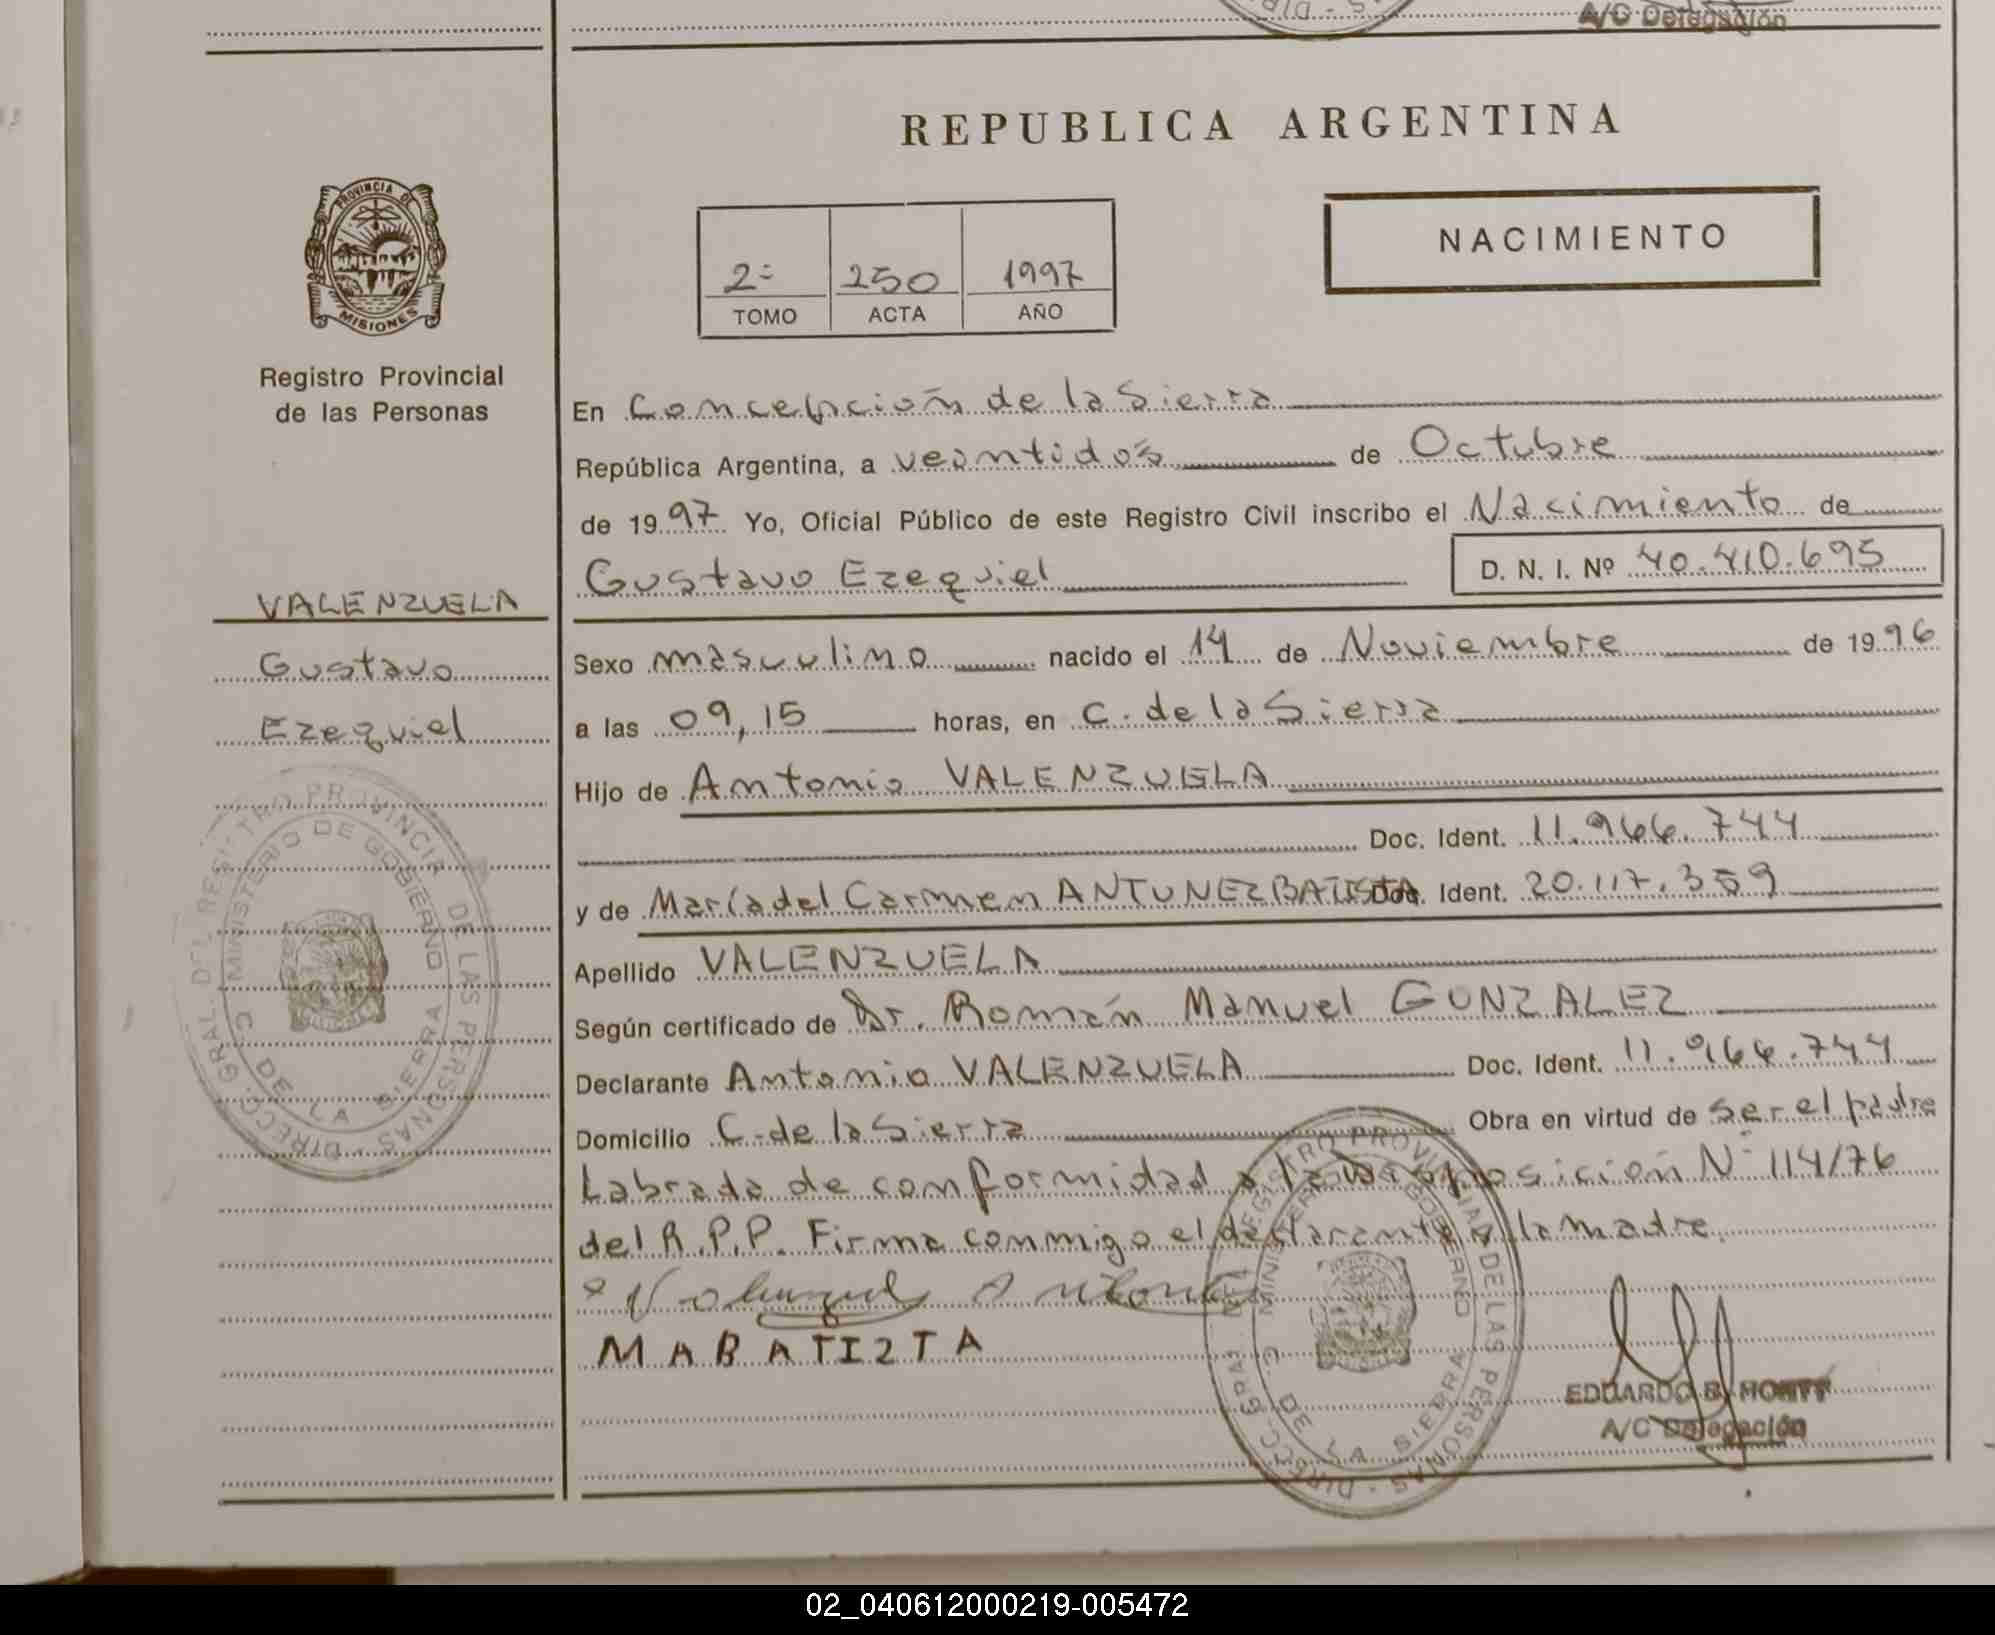 A/C Delegación
REPUBLICA ARGENTINA
NACIMIENTO
PROVINCIA DE
MISIONES
2= 250 1997
TOMO ACTA AÑO
Registro Provincial
de las Personas
En Concepción de la Sierra
República Argentina, a veintidós de Octubre
de 1997 Yo, Oficial Público de este Registro Civil inscribo el Nacimiento de
Gustavo Ezequiel D. N. I. Nº 40.410.695
VALENZUELA
Gustavo
Ezequiel
Sexo masculino nacido el 14 de Noviembre de 1996
a las 09,15 horas, en C. de la Sierra
Hijo de Antonio VALENZUELA
Doc. Ident. 11.966.744
y de María del Carmen ANTUNEZ BATISTA Doc. Ident. 20.117.359
Apellido VALENZUELA
Según certificado de Dr. Román Manuel GONZALEZ
Declarante Antonio VALENZUELA Doc. Ident. 11.966.744
Domicilio C. de la Sierra Obra en virtud de ser el padre
Labrada de conformidad a la Disposición Nº 114/76
del R.P.P. Firma conmigo el declarante y la madre.
Valenzuela Antonio
MABATI2TA
DIRECC. GRAL. DEL REGISTRO PROVINCIAL DE LAS PERSONAS
MINISTERIO DE GOBIERNO
C. DE LA SIERRA
DIRECC. GRAL. DEL REGISTRO PROVINCIAL DE LAS PERSONAS
MINISTERIO DE GOBIERNO
C. DE LA SIERRA
EDUARDO B.
A/C Delegación
02_040612000219-005472